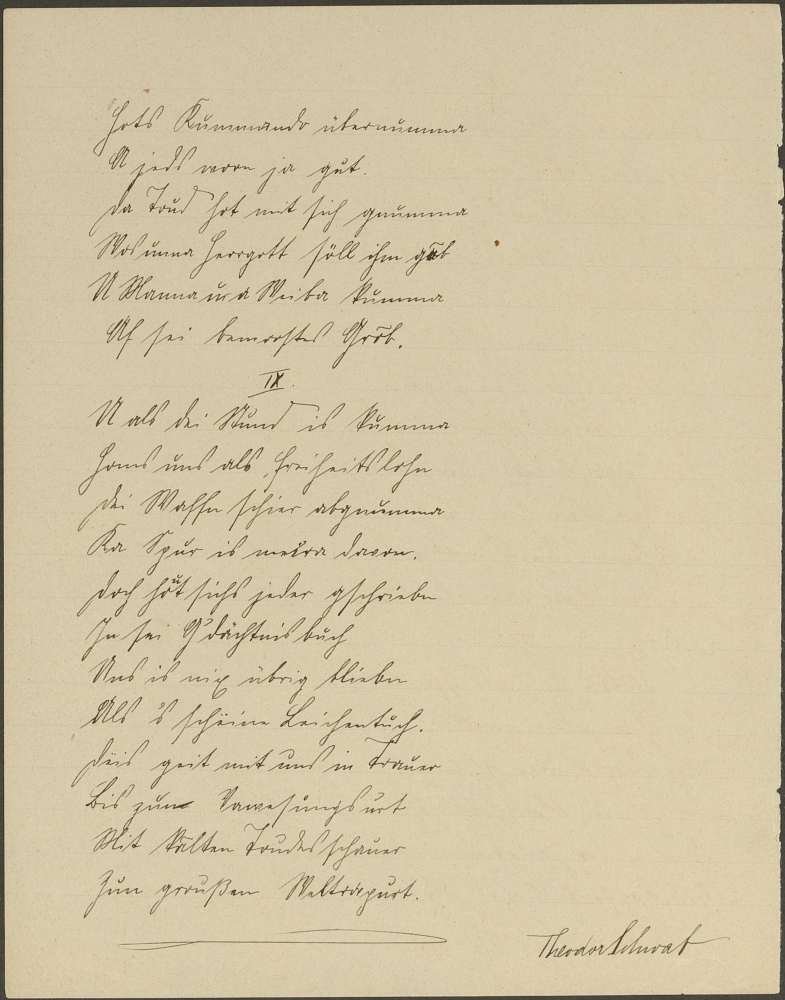 Hots Kummando übernumma
U jeds worn ja gut.
Da Toud hot mit sich gnumma
Wos unna Herrgott söll ihm gäb
U Manna u a Weiba kumma
Af sei bemoostes Grōb.
IX.
U als dei Stund is kumma
Homs uns als Freiheitslohn
Dei Waffn schier abgnumma
Ka Spur is mehra davon.
Doch hot sichs jeder gschriebn
In sei G'dächtnisbuch
Uns is nix übrig bliebn
Als 's schöine Leichentuch.
Döis geit mit uns in Trauer
Bis zun Vawesungsurt
Mit kalten Toudesschauer
Zun groußen Weltrapurt.
Theodor Schwab